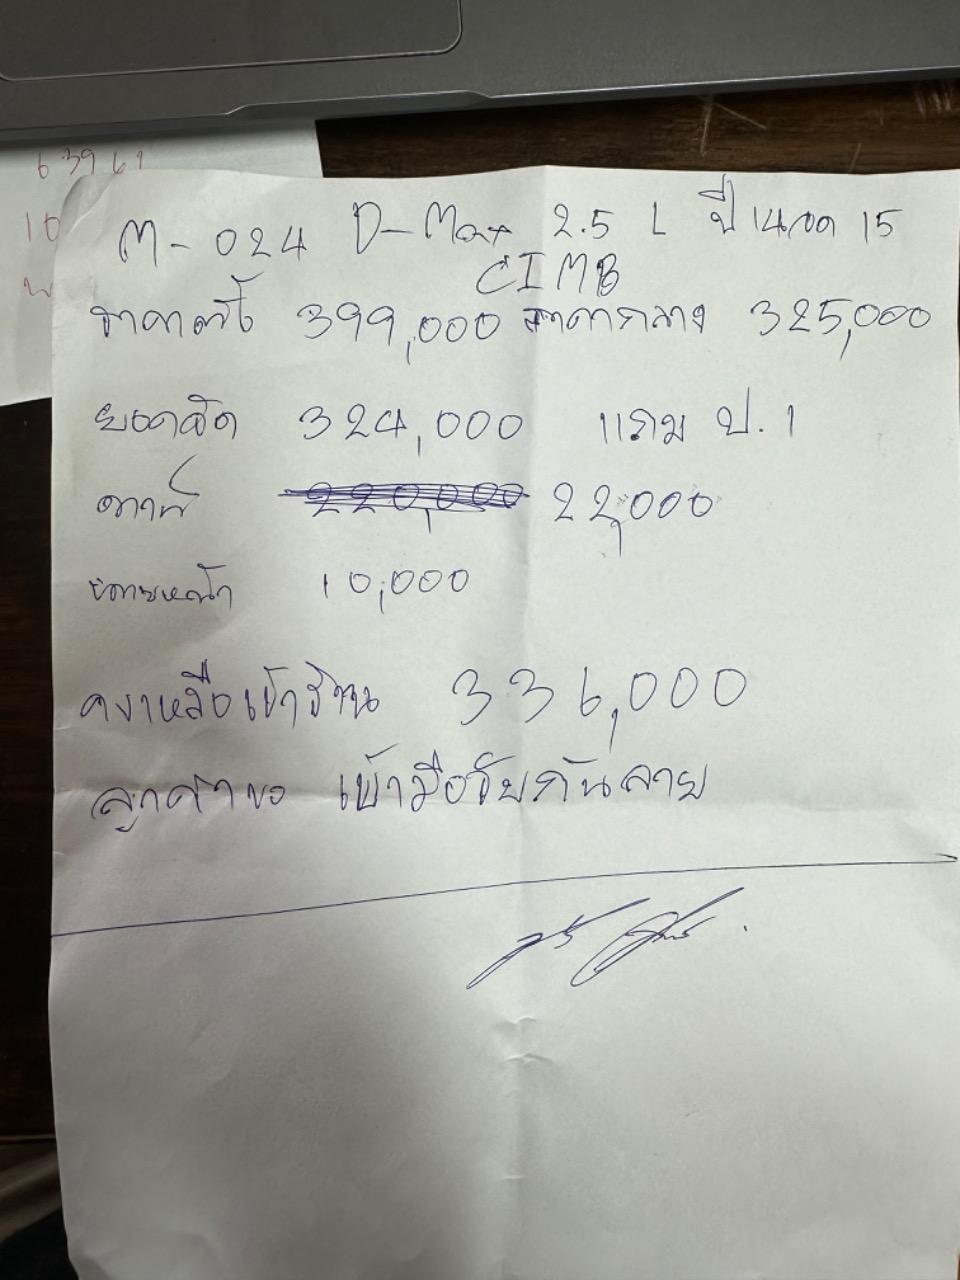 6 39 61
10
M-024 D-Max 2.5 L ปี 14จด 15
CIMB
ราคาตั้ง 399,000 ราคากลาง 325,000
ยอดจัด 324,000 แถม ป.1
ดาวน์ 220,000 22,000
นายหน้า 10,000
คงเหลือเข้าร้าน 336,000
ลูกค้าขอ เข้ามือจับกันลาย